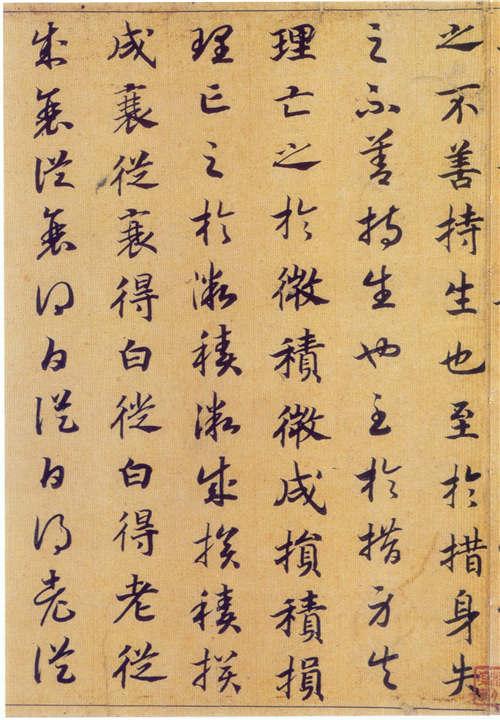 之不善持生也至於措身失
之不善持生也至於措身失
理亡之於微積微成損積損
理亡之於微積微成損積損
成衰從衰得白從白得老從
成衰從衰得白從白得老從